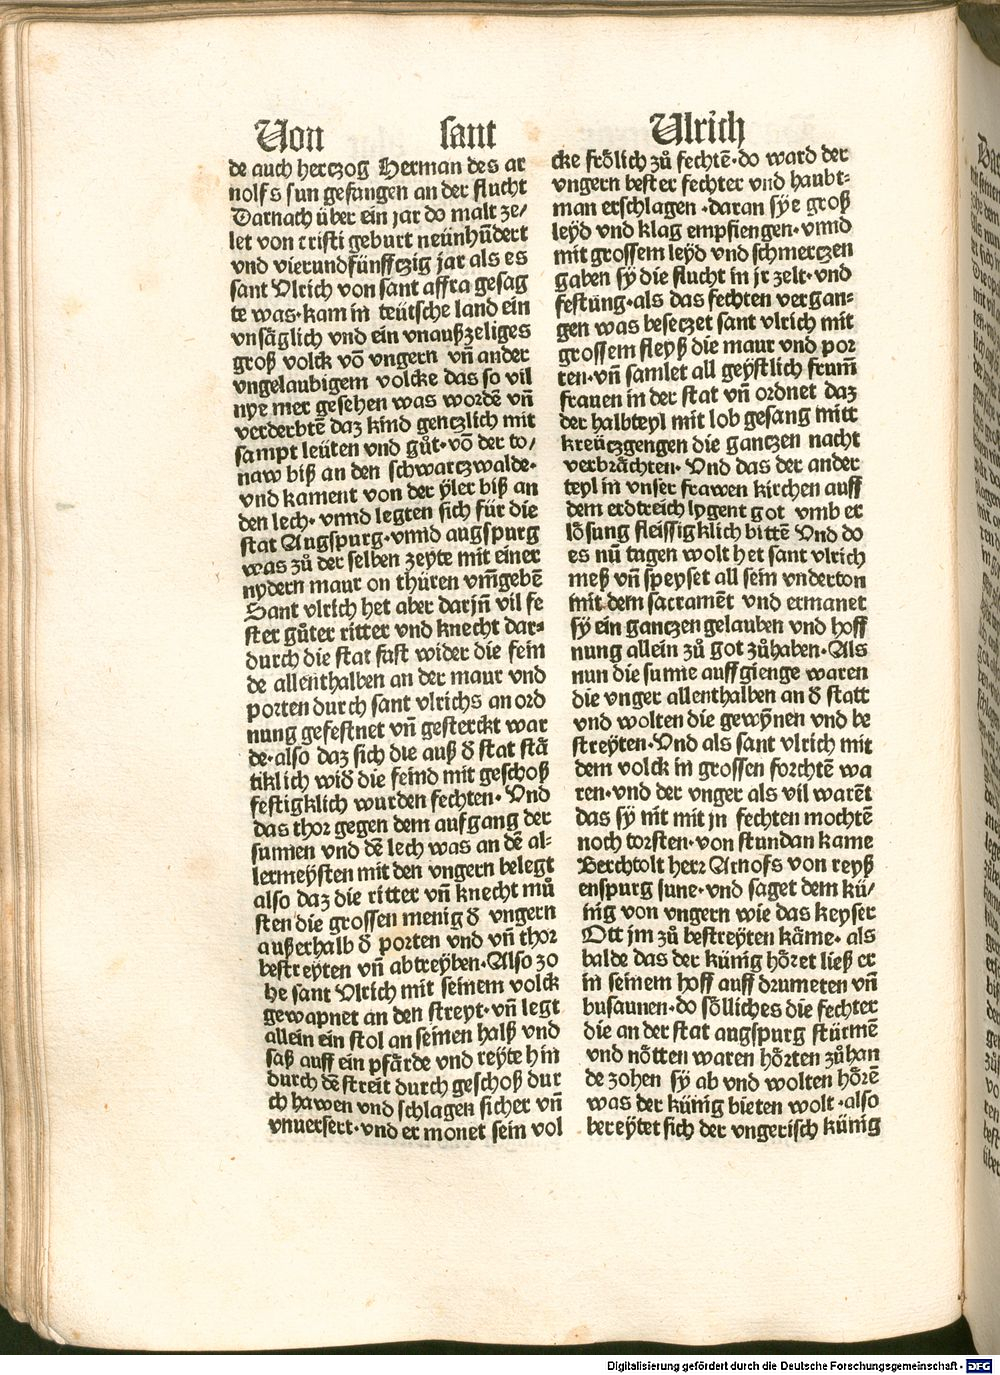 Von sant Ulrich
de auch hertzog Herman des ar
nolfs sun gefangen an der flucht
Darnach über ein jar do malt ze/
let von cristi geburt neünhūdert
vnd vierundfünfftzig jar als es
sant Vlrich von sant affra gesag
te was·kam in teütsche land ein
vnsäglich vnd ein vnaußzeliges
groß volck vō vngern vn̄ ander
vngelaubigem volcke das so vil
nye mer gesehen was wordē vn̄
verderbtē daz kind gentzlich mit
sampt leüten vnd gůt·vō der to/
naw biß an den schwartzwalde·
vnd kament von der ÿler biß an
den lech·vnnd legten sich für die
stat Augspurg·vnnd augspurg
was zů der selben zeyte mit einer
nydern maur on thüren vm̄gebē
Sant vlrich het aber darjn̄ vil fe
ster gůter ritter vnd knecht dar-
durch die stat fast wider die fein
de allenthalben an der maur vnd
porten durch sant vlrichs an ord
nung gefestnet vn̄ gesterckt war
de·also daz sich die auß đ stat stā
tiklich wiđ die feind mit geschoß
festigklich wurden fechten·Vnd
das thor gegen dem aufgang der
sunnen vnd dē lech was an dē al-
lermeÿsten mit den vngern belegt
also daz die ritter vn̄ knecht mů
sten die grossen menig đ vngern
außerhalb đ porten vnd vn̄ thor
bestreyten vn̄ abtreÿben·Also zo
he sant Vlrich mit seinem volck
gewapnet an den streyt·vn̄ legt
allein ein stol an seinen halß vnd
saß auff ein pfärde vnd reÿte hin
durch dē streit durch geschoß dur
ch hawen vnd schlagen sicher vn̄
vnuersert·vnd er monet sein vol
cke frölich zů fechtē·do ward der
vngern bester fechter vnd haubt-
man erschlagen·daran sÿe groß
leÿd vnd klag empfiengen·vnnd
mit grossem leÿd vnd schmertzen
gaben sÿ die flucht in jr zelt·vnd
festung·als das fechten vergan-
gen was besetzet sant vlrich mit
grossem fleyß die maur vnd por
ten·vn̄ samlet all geÿstlich frum̄
frauen in der stat vn̄ ordnet daz
der halbteyl mit lob gesang mitt
kreützgengen die gantzen nacht
verbrächten·Vnd das der ander
teyl in vnser frawen kirchen auff
dem erdtreich lygent got vmb er
lösung fleissigklich bittē Vnd do
es nū tagen wolt het sant vlrich
meß vn̄ speyset all sein vnderton
mit dem sacramēt vnd ermanet
sÿ ein gantzen gelauben vnd hoff
nung allein zů got zůhaben·Als
nun die sunne auffgienge waren
die vnger allenthalben an đ statt
vnd wolten die gewÿnen vnd be
streÿten·Vnd als sant vlrich mit
dem volck in grossen forchtē wa
ren·vnd der vnger als vil warēt
das sÿ nit mit jn fechten mochtē
noch torsten·von stundan kame
Berchtolt herr Arnofs von reyß
enspurg sune·vnd saget dem kü/
nig von vngern wie das keyser
Ott jm zů bestreÿten käme·als
balde das der künig höret ließ er
in seinem hoff auff drumeten vn̄
busaunen·do sölliches die fechter
die an der stat augspurg stürmē
vnd nötten waren hörten zůhan
de zohen sÿ ab vnd wolten hörē
was der künig bieten wolt·also
bereÿtet sich der vngerisch künig
Digitalisierung gefördert durch die Deutsche Forschungsgemeinschaft - DFG